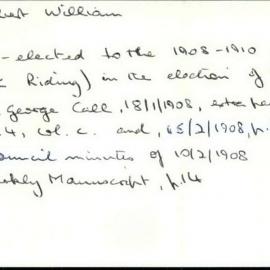 bert William
-elected to the 1908-1910
Riding) in the election of
George Call, 18/1/1908, extra
4, col. c. and, 15/2/1908, p.
ouncil minutes of 10/2/1908
ekly Manuscript, p.14